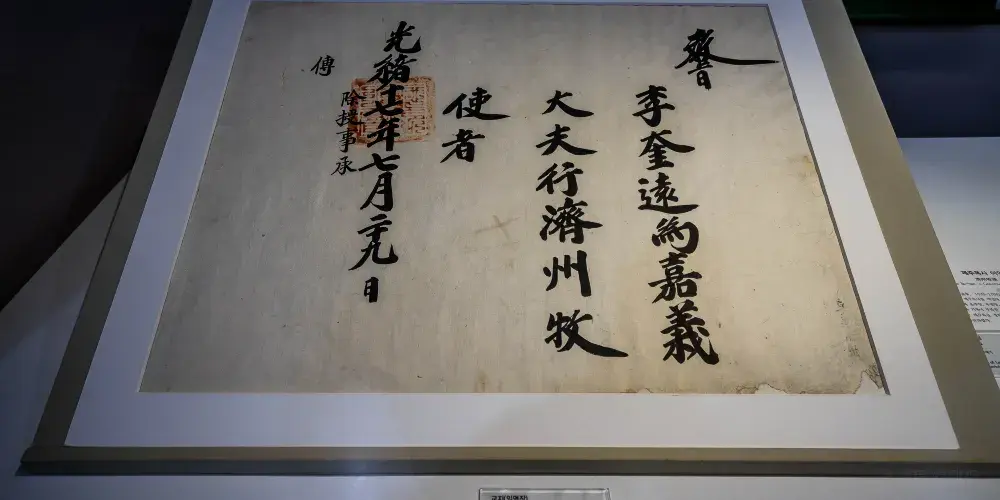 敎旨
李奎遠爲嘉義
大夫行濟州牧
使者
光緖十七年七月二十九日
除授事承
傳